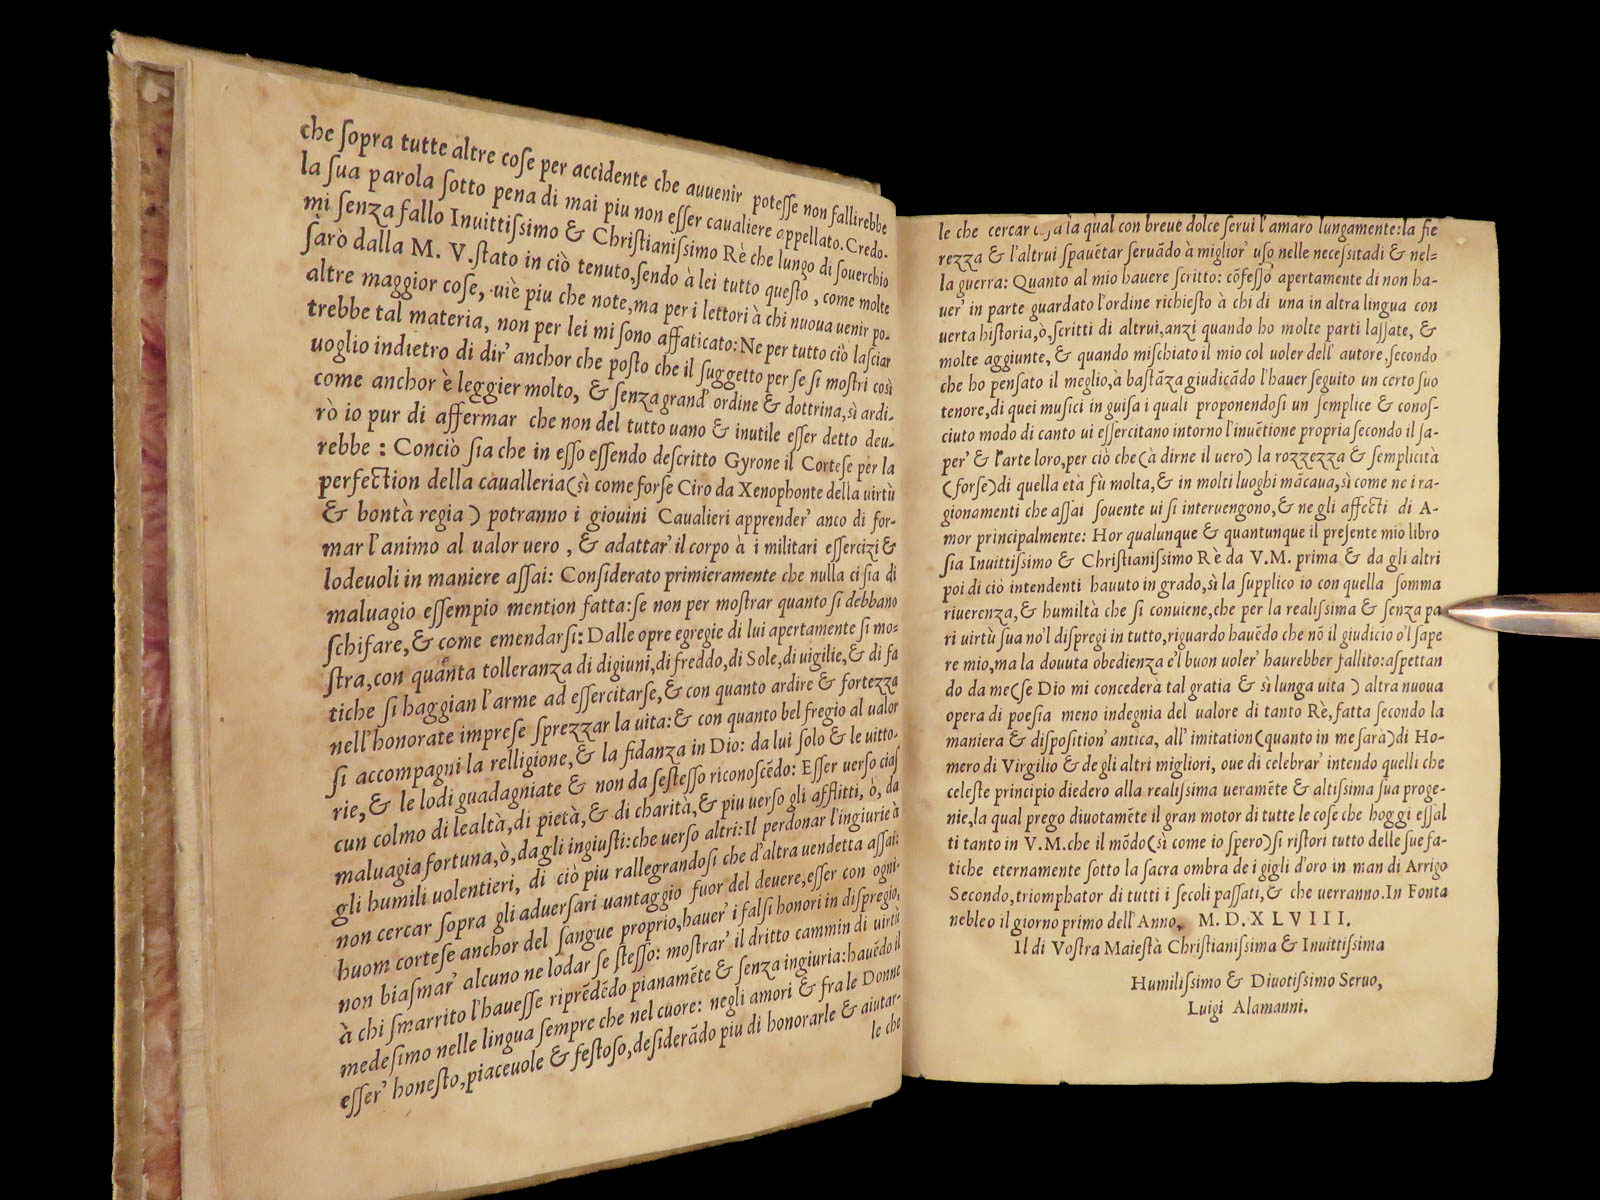 che ſopra tutte altre coſe per accidente che auuenir poteſſe non fallirebbe
la ſua parola ſotto pena di mai piu non eſſer caualiere appellato. Credo-
mi ſenza fallo Inuittiſsimo & Chriſtianiſsimo Rè che lungo di ſouerchio
ſarò dalla M. V. ſtato in ciò tenuto, ſendo à lei tutto queſto, come molte
altre maggior coſe, uiè piu che note, ma per i lettori à chi nuoua uenir po-
trebbe tal materia, non per lei mi ſono affaticato: Ne per tutto ciò laſciar
uoglio indietro di dir' anchor che poſto che il ſuggetto per ſe ſi moſtri coſì
come anchor è leggier molto, & ſenza grand' ordine & dottrina, sì ardi-
rò io pur di affermar che non del tutto uano & inutile eſſer detto deu-
rebbe : Conciò ſia che in eſſo eſſendo deſcritto Gyrone il Corteſe per la
perfection della caualleria (sì come forſe Ciro da Xenophonte della uirtù
& bontà regia) potranno i giouini Caualieri apprender' anco di for-
mar l'animo al ualor uero, & adattar' il corpo à i militari eſſercizi &
lodeuoli in maniere aſſai: Conſiderato primieramente che nulla ci ſia di
maluagio eſſempio mention fatta: ſe non per moſtrar quanto ſi debbano
ſchifare, & come emendarſi: Dalle opre egregie di lui apertamente ſi mo-
ſtra, con quanta tolleranza di digiuni, di freddo, di Sole, di uigilie, & di fa
tiche ſi haggian l'arme ad eſſercitarſe, & con quanto ardire & fortezza
nell'honorate impreſe ſprezzar la uita: & con quanto bel fregio al ualor
ſi accompagni la relligione, & la fidanza in Dio: da lui ſolo & le uitto-
rie, & le lodi guadagniate & non da ſeſteſſo riconoſcẽdo: Eſſer uerſo ciaſ
cun colmo di lealtà, di pietà, & di charità, & piu uerſo gli afflitti, ò, da
maluagia fortuna, ò, dagli ingiuſti: che uerſo altri: Il perdonar l'ingiurie à
gli humili uolentieri, di ciò piu rallegrandoſi che d'altra uendetta aſſai:
non cercar ſopra gli aduerſari uantaggio fuor del deuere, eſſer con ogni-
huom corteſe anchor del ſangue proprio, hauer' i falſi honori in diſpregio,
non biaſmar' alcuno ne lodar ſe ſteſſo: moſtrar' il dritto cammin di uirtù
à chi ſmarrito l'haueſſe riprẽdẽdo pianamẽte & ſenza ingiuria: hauẽdo il
medeſimo nelle lingua ſempre che nel cuore: negli amori & fra le Donne
eſſer' honeſto, piaceuole & feſtoſo, deſiderãdo piu di honorarle & aiutar-
le che
le che cercar coſa la qual con breue dolce ſerui l'amaro lungamente: la fie
rezza & l'altrui ſpauẽtar ſeruãdo à miglior' uſo nelle neceſsitadi & nel-
la guerra: Quanto al mio hauere ſcritto: cõfeſſo apertamente di non ha-
uer' in parte guardato l'ordine richieſto à chi di una in altra lingua con
uerta hiſtoria, ò, ſcritti di altrui, anzi quando ho molte parti laſſate, &
molte aggiunte, & quando miſchiato il mio col uoler dell' autore, ſecondo
che ho penſato il meglio, à baſtãza giudicãdo l'hauer ſeguito un certo ſuo
tenore, di quei muſici in guiſa i quali proponendoſi un ſemplice & conoſ-
ciuto modo di canto ui eſſercitano intorno l'inuẽtione propria ſecondo il ſa-
per' & l'arte loro, per ciò che (à dirne il uero) la rozzezza & ſemplicità
(forſe) di quella età fù molta, & in molti luoghi mãcaua, sì come ne i ra-
gionamenti che aſſai ſouente ui ſi interuengono, & ne gli affecti di A-
mor principalmente: Hor qualunque & quantunque il preſente mio libro
ſia Inuittiſsimo & Chriſtianiſsimo Rè da V. M. prima & da gli altri
poi di ciò intendenti hauuto in grado, sì la ſupplico io con quella ſomma
riuerenza, & humiltà che ſi conuiene, che per la realiſsima & ſenza pa
ri uirtù ſua no'l diſpregi in tutto, riguardo hauẽdo che nõ il giudicio o'l ſape
re mio, ma la douuta obedienza e'l buon uoler' haurebber fallito: aſpettan
do da me (ſe Dio mi concederà tal gratia & sì lunga uita ) altra nuoua
opera di poeſia meno indegnia del ualore di tanto Rè, fatta ſecondo la
maniera & diſpoſition' antica, all' imitation (quanto in me ſarà) di Ho-
mero di Virgilio & de gli altri migliori, oue di celebrar' intendo quelli che
celeſte principio diedero alla realiſsima ueramẽte & altiſsima ſua proge-
nie, la qual prego diuotamẽte il gran motor di tutte le coſe che hoggi eſſal
ti tanto in V. M. che il mõdo (sì come io ſpero) ſi riſtori tutto delle ſue fa-
tiche eternamente ſotto la ſacra ombra de i gigli d'oro in man di Arrigo
Secondo, triomphator di tutti i ſecoli paſſati, & che uerranno. In Fonta
nebleo il giorno primo dell' Anno, M. D. XLVIII.
Il di Voſtra Maieſtà Chriſtianiſsima & Inuittiſsima
Humiliſsimo & Diuotiſsimo Seruo,
Luigi Alamanni.